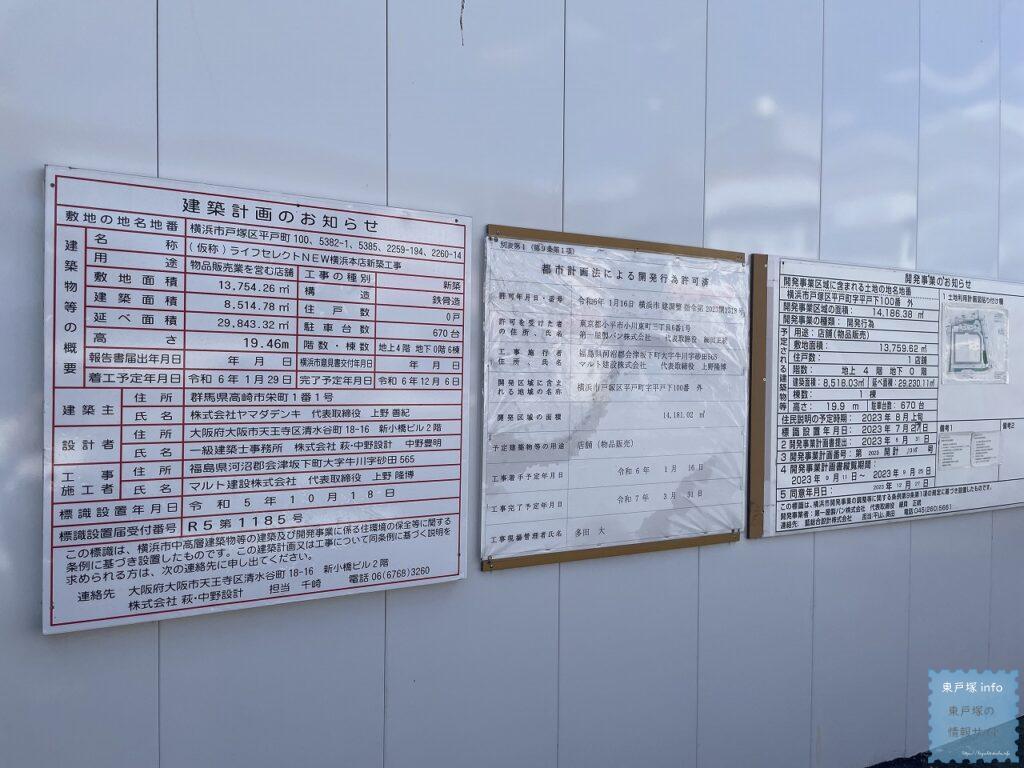 建築計画のお知らせ
敷地の地名地番 横浜市戸塚区平戸町 100、5382-1、5385、2259-194、2260-14
建築物等の概要
名称 (仮称)ライフセレクトNEW横浜本店新築工事
用途 物品販売業を営む店舗 工事の種別 新築
敷地面積 13,754.26㎡ 構造 鉄骨造
建築面積 8,514.78㎡ 住戸数 0戸
延べ面積 29,843.32㎡ 駐車台数 670台
高さ 19.46m 階数・棟数 地上4階 地下0階6棟
報告書届出年月日 年 月 日 横浜市意見書交付年月日 年 月 日
着工予定年月日 令和6年1月29日 完了予定年月日 令和6年12月6日
建築主 住所 群馬県高崎市栄町1番1号
氏名 株式会社ヤマダデンキ 代表取締役 上野 善紀
設計者 住所 大阪府大阪市天王寺区清水谷町 18-16 新小橋ビル2階
氏名 一級建築士事務所 株式会社 萩・中野設計 中野豊明
工事施工者 住所 福島県河沼郡会津坂下町大字牛川字砂田 565
氏名 マルト建設株式会社 代表取締役 上野 隆博
標識設置年月日 令和5年10月18日
標識設置届受付番号 R5第1185号
この標識は、横浜市中高層建築物等の建築及び開発事業に係る住環境の保全等に関する
条例に基づき設置したものです。この建築計画又は工事について同条例に基づく説明を
求められる方は、次の連絡先に申し出てください。
連絡先 大阪府大阪市天王寺区清水谷町 18-16 新小橋ビル2階
株式会社 萩・中野設計 担当 千崎 電話 06(6768)3260
別表第4(第9条第1項)
都市計画法による開発行為許可済
許可年月日・番号 令和6年1月16日 横浜市 建調整 指令第
許可を受けた者の住所、氏名 東京都小平市小川東町三丁目6番1号
第一屋製パン株式会社 代表取締役 細貝正統
工事施行者住所、氏名 福島県河沼郡会津坂下町大字牛川字砂田565
マルト建設株式会社 代表取締役 上野隆博
開発区域に含まれる地域の名称 横浜市戸塚区平戸町字平戸下100番 外
開発区域の面積 14,181.02 ㎡
予定建築物等の用途 店舗(物品販売)
工事着手予定年月日 令和6年 1月 16日
工事完了予定年月日 令和7年 3月 31日
工事現場管理者氏名 多田 大
開発事業のお知らせ
開発事業区域に含まれる土地の地名地番
横浜市戸塚区平戸町字平戸下100番 外
開発事業区域の面積: 14,186.38 ㎡
開発事業の種類: 開発行為
予定される建築物等
用途: 店舗(物品販売)
敷地面積: 13,759.62㎡
住戸数: 1店舗
階数: 地上 4階 地下 0階
建築面積: 8,518.03㎡ 延べ面積: 29,230.11㎡
棟数: 1棟
高さ: 19.9m 駐車台数: 670台
住民説明の予定時期: 2023年8月上旬
標識設置年月日: 2023年7月27日
2 開発事業計画書提出: 2023年8月31日
3 開発事業計画番号: 第2023開計 号
4 開発事業計画書縦覧期間:
2023年9月11日~2023年9月25日
5 同意年月日: 2023年12月27日
1 土地利用計画図貼り付け欄
備考1
備考2
この標識は、横浜市開発事業の調整等に関する条例第9条第1項の規定に基づき設置したものです。
開発事業者: 第一屋製パン株式会社 代表取締役 細貝 正統
東戸塚 info
東戸塚の
情報サイト